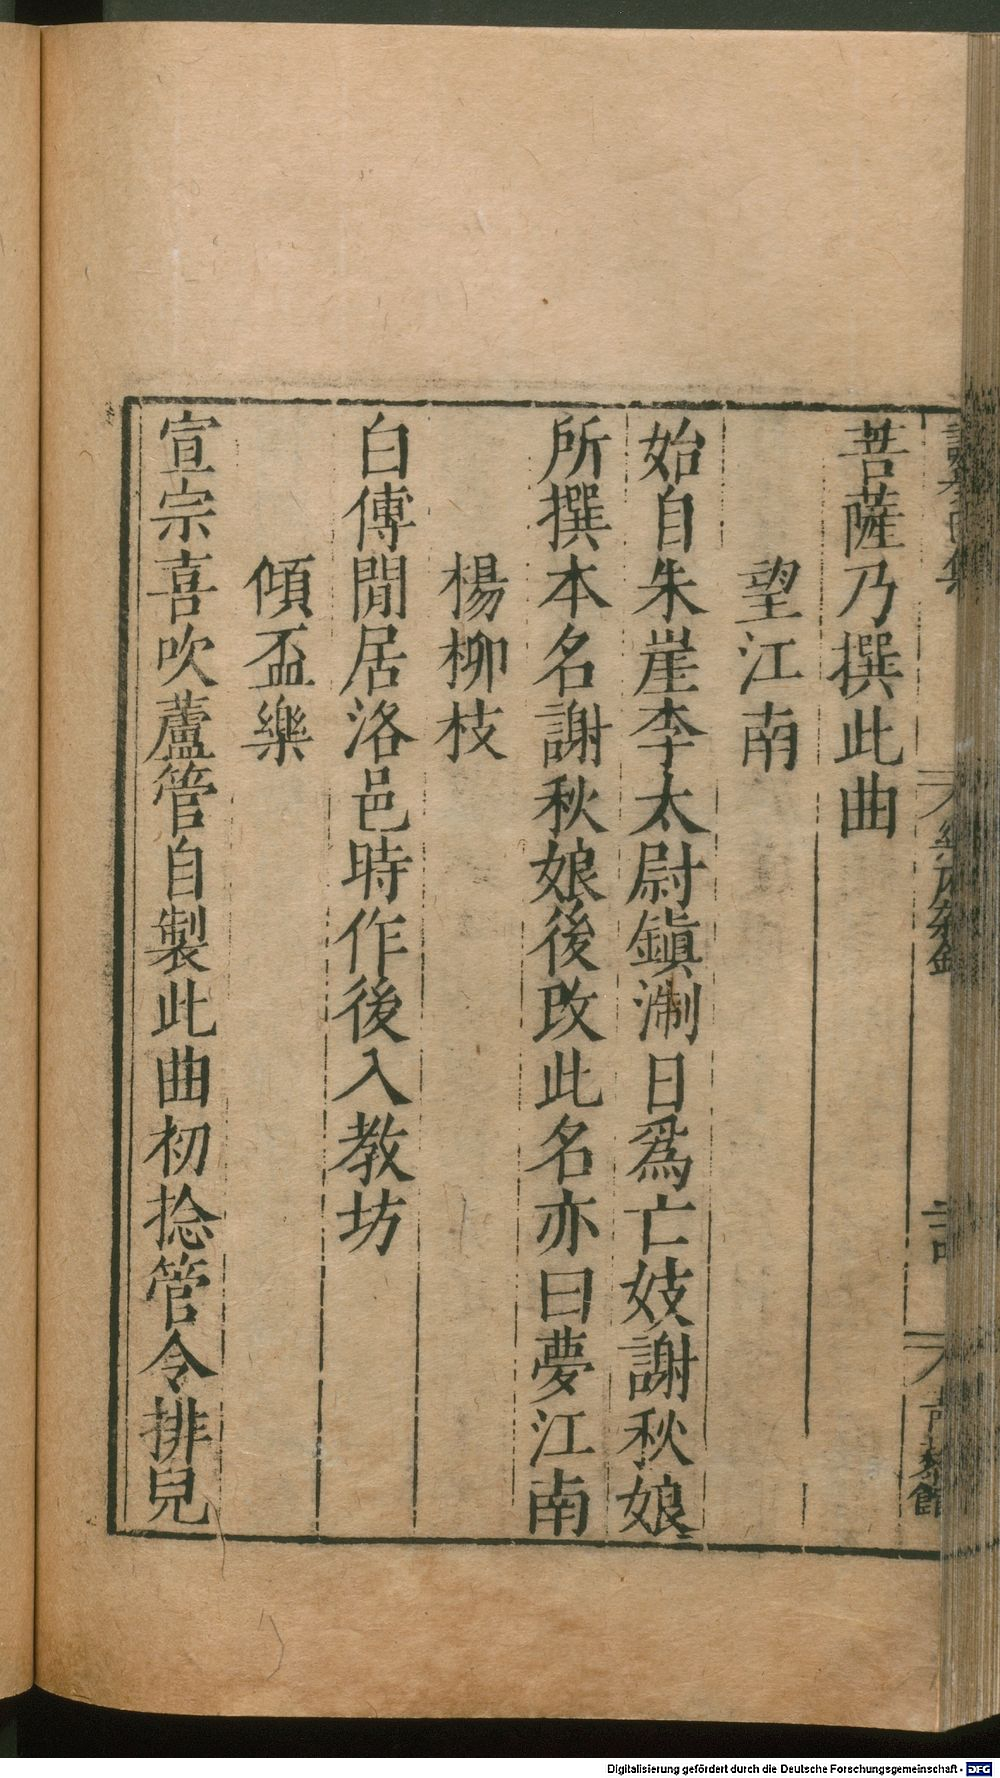 樂府雜錄
菩薩乃撰此曲
望江南
始自朱崖李太尉鎮淛日爲亡妓謝秋娘
所撰本名謝秋娘後改此名亦曰夢江南
楊柳枝
白傅閒居洛邑時作後入教坊
傾盃樂
宣宗喜吹蘆管自製此曲初捻管令排兒
Digitalisierung gefördert durch die Deutsche Forschungsgemeinschaft - DFG